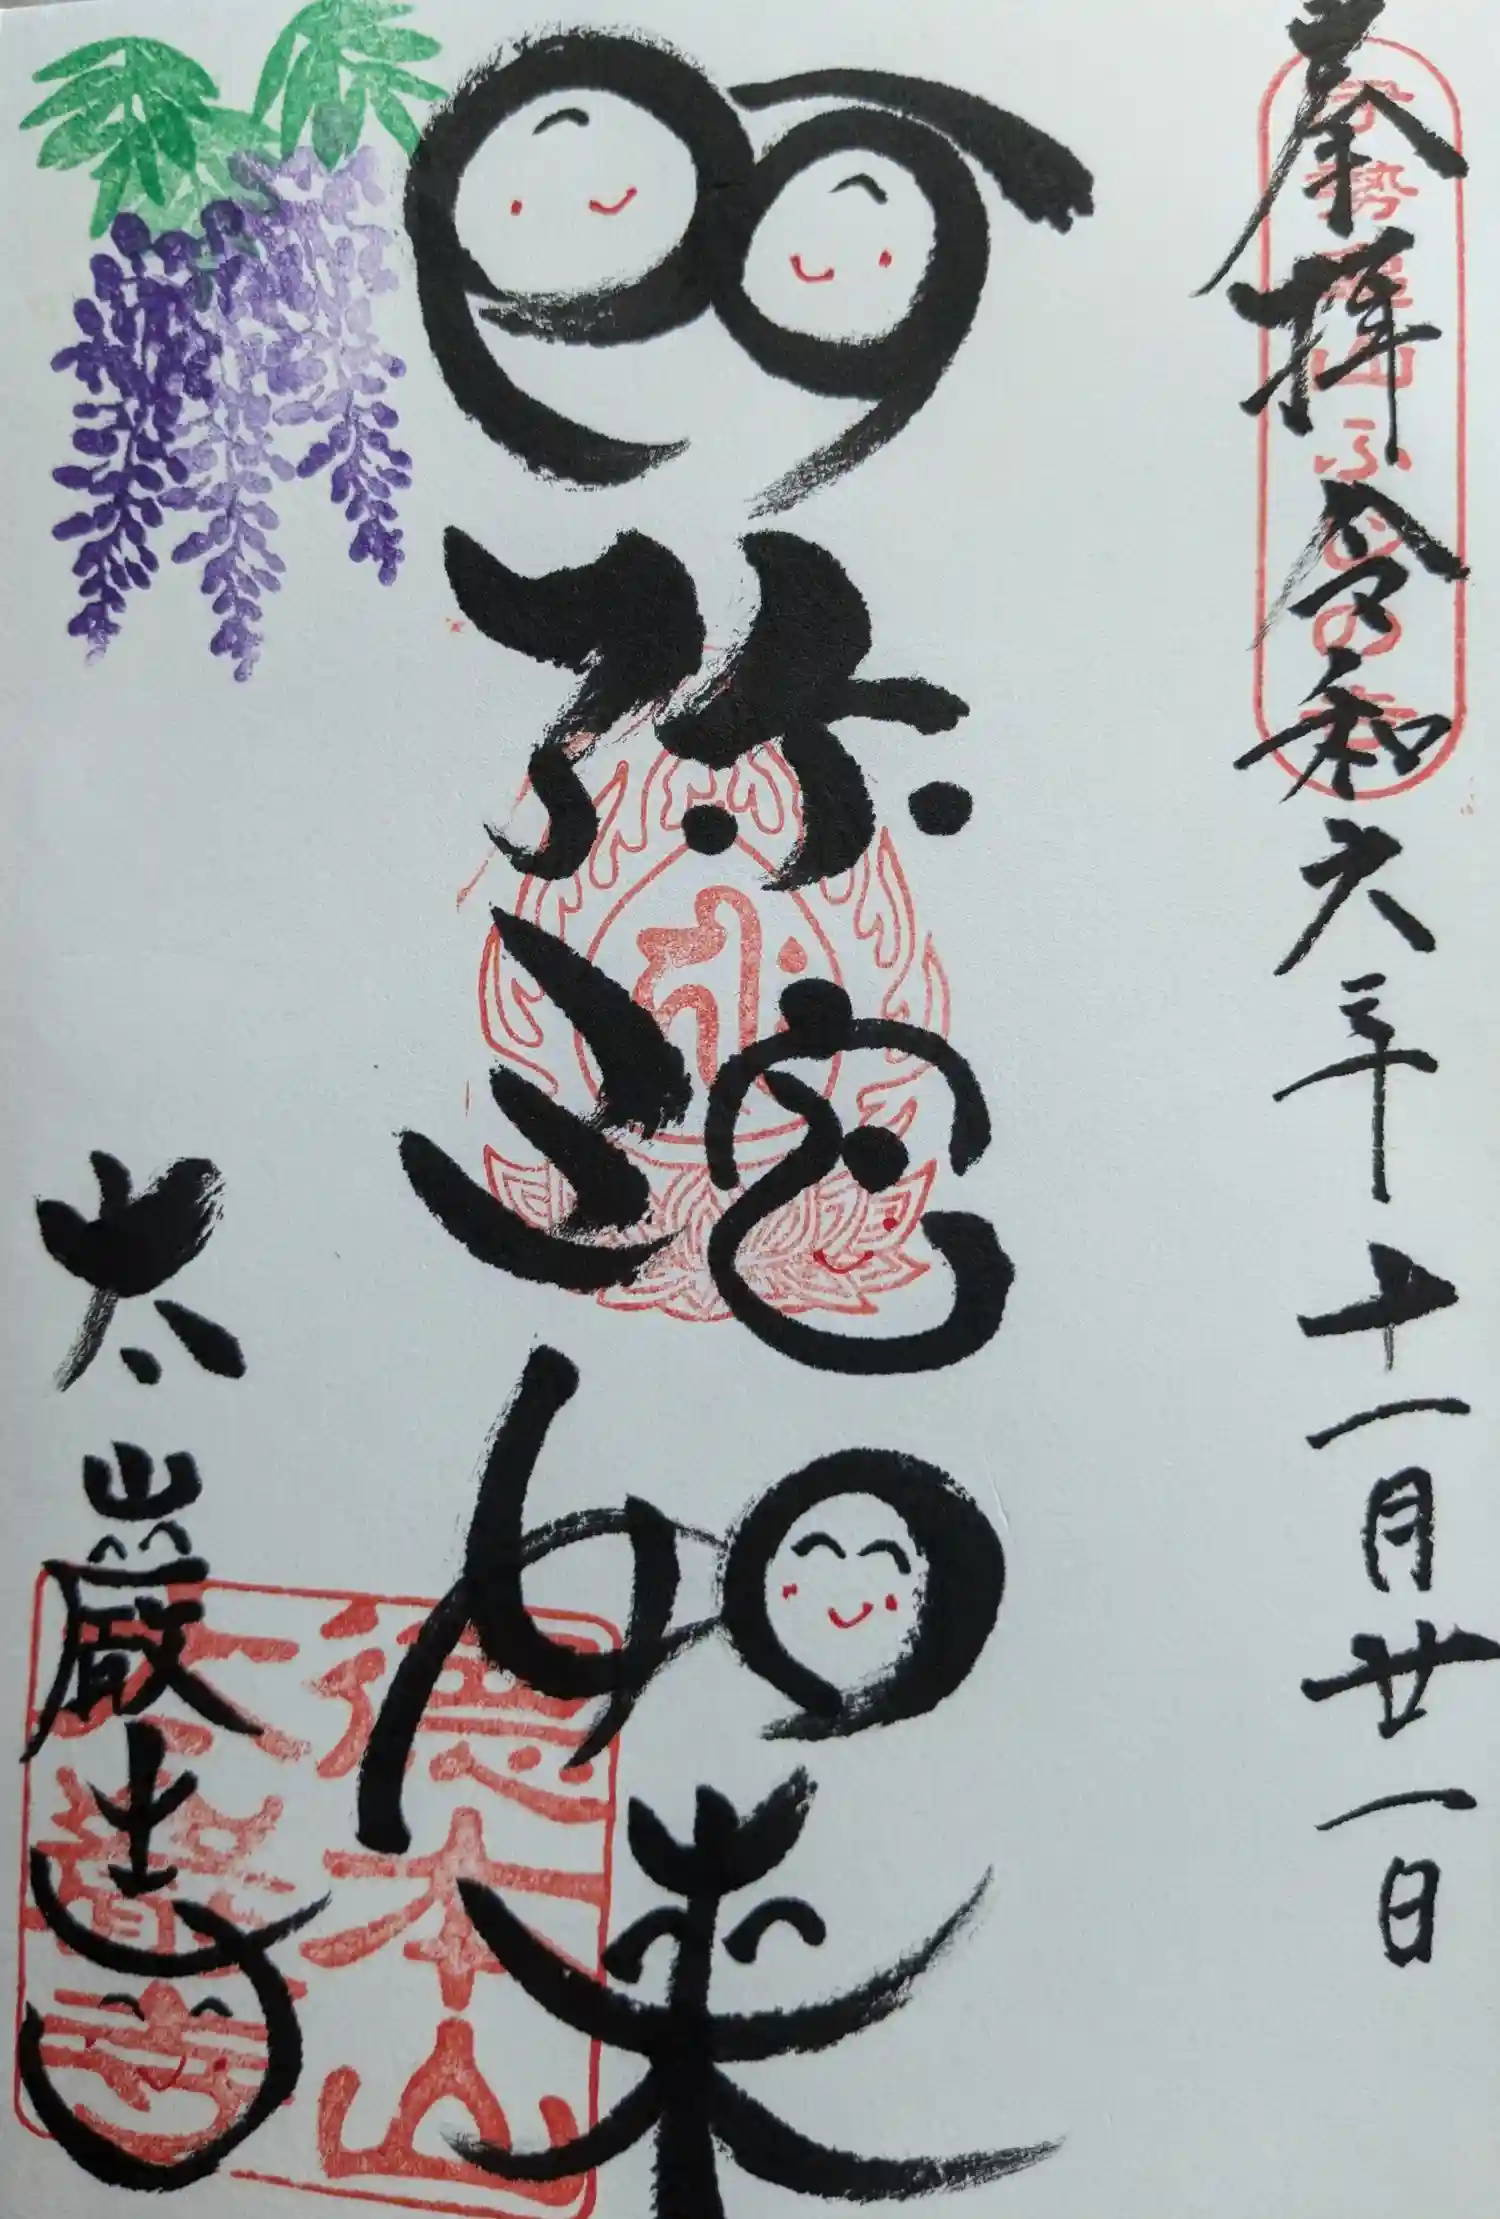 奉拝 令和六年十一月廿一日
阿弥陀如来
大巌寺
徳本山